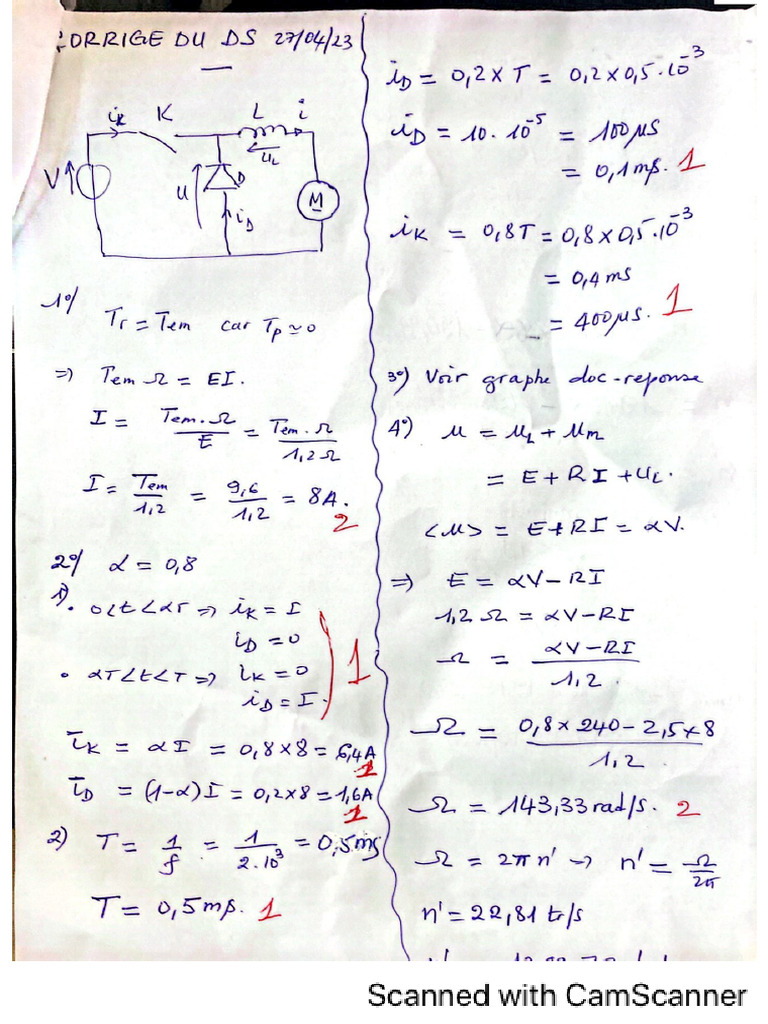 CORRIGE DU DS 27/04/23
iK K L i
V u D uL M
iD
1°/ Tr = Tem car Tp ≃ 0
=> Tem Ω = EI.
I = Tem.Ω / E = Tem.Ω / 1,2Ω
I = Tem / 1,2 = 9,6 / 1,2 = 8A.
2
2°/ α = 0,8
1). 0<t<αT => iK = I
iD = 0
• αT<t<T => iK = 0
iD = I.
1
īK = αI = 0,8×8 = 6,4A
1
īD = (1-α)I = 0,2×8 = 1,6A
1
2) T = 1/f = 1 / 2.10³ = 0,5ms
T = 0,5ms. 1
iD = 0,2×T = 0,2×0,5.10⁻³
iD = 10.10⁻⁵ = 100µs
= 0,1ms. 1
iK = 0,8T = 0,8×0,5.10⁻³
= 0,4ms
= 400µs. 1
3°) Voir graphe doc-reponse
4°) u = uL + um
= E + RI + uL.
<u> = E + RI = αV.
=> E = αV - RI
1,2Ω = αV - RI
Ω = αV - RI / 1,2.
Ω = 0,8×240 - 2,5×8 / 1,2
Ω = 143,33 rad/s. 2
Ω = 2π n' -> n' = Ω / 2π
n' = 22,81 tr/s
Scanned with CamScanner